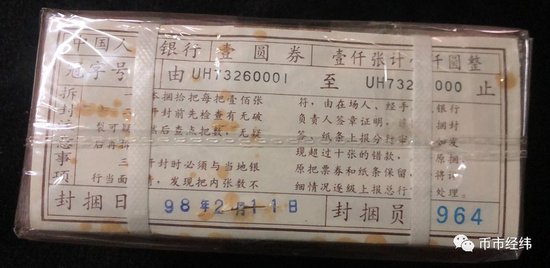 中国人 银行壹圆券 壹仟张计 仟圆整
冠字号 由 UH73260001 至 UH73 000 止
拆封注意事项
本捆拾把每把壹佰张
开封前先检查有无破
裂可疑 然后查点把数，无疑
后再拆
三 开封时必须与当地银
行当面 清，发现把内张数不
符，由在场人、经手 银行
负责人签章证明，
签、纸条上报分行审 如发
现超过十张的错款， 原捆
原把票券和纸条保留，
细情况逐级上报总行 处理。
封捆日 98年2月11日 封捆员 964
币市经纬